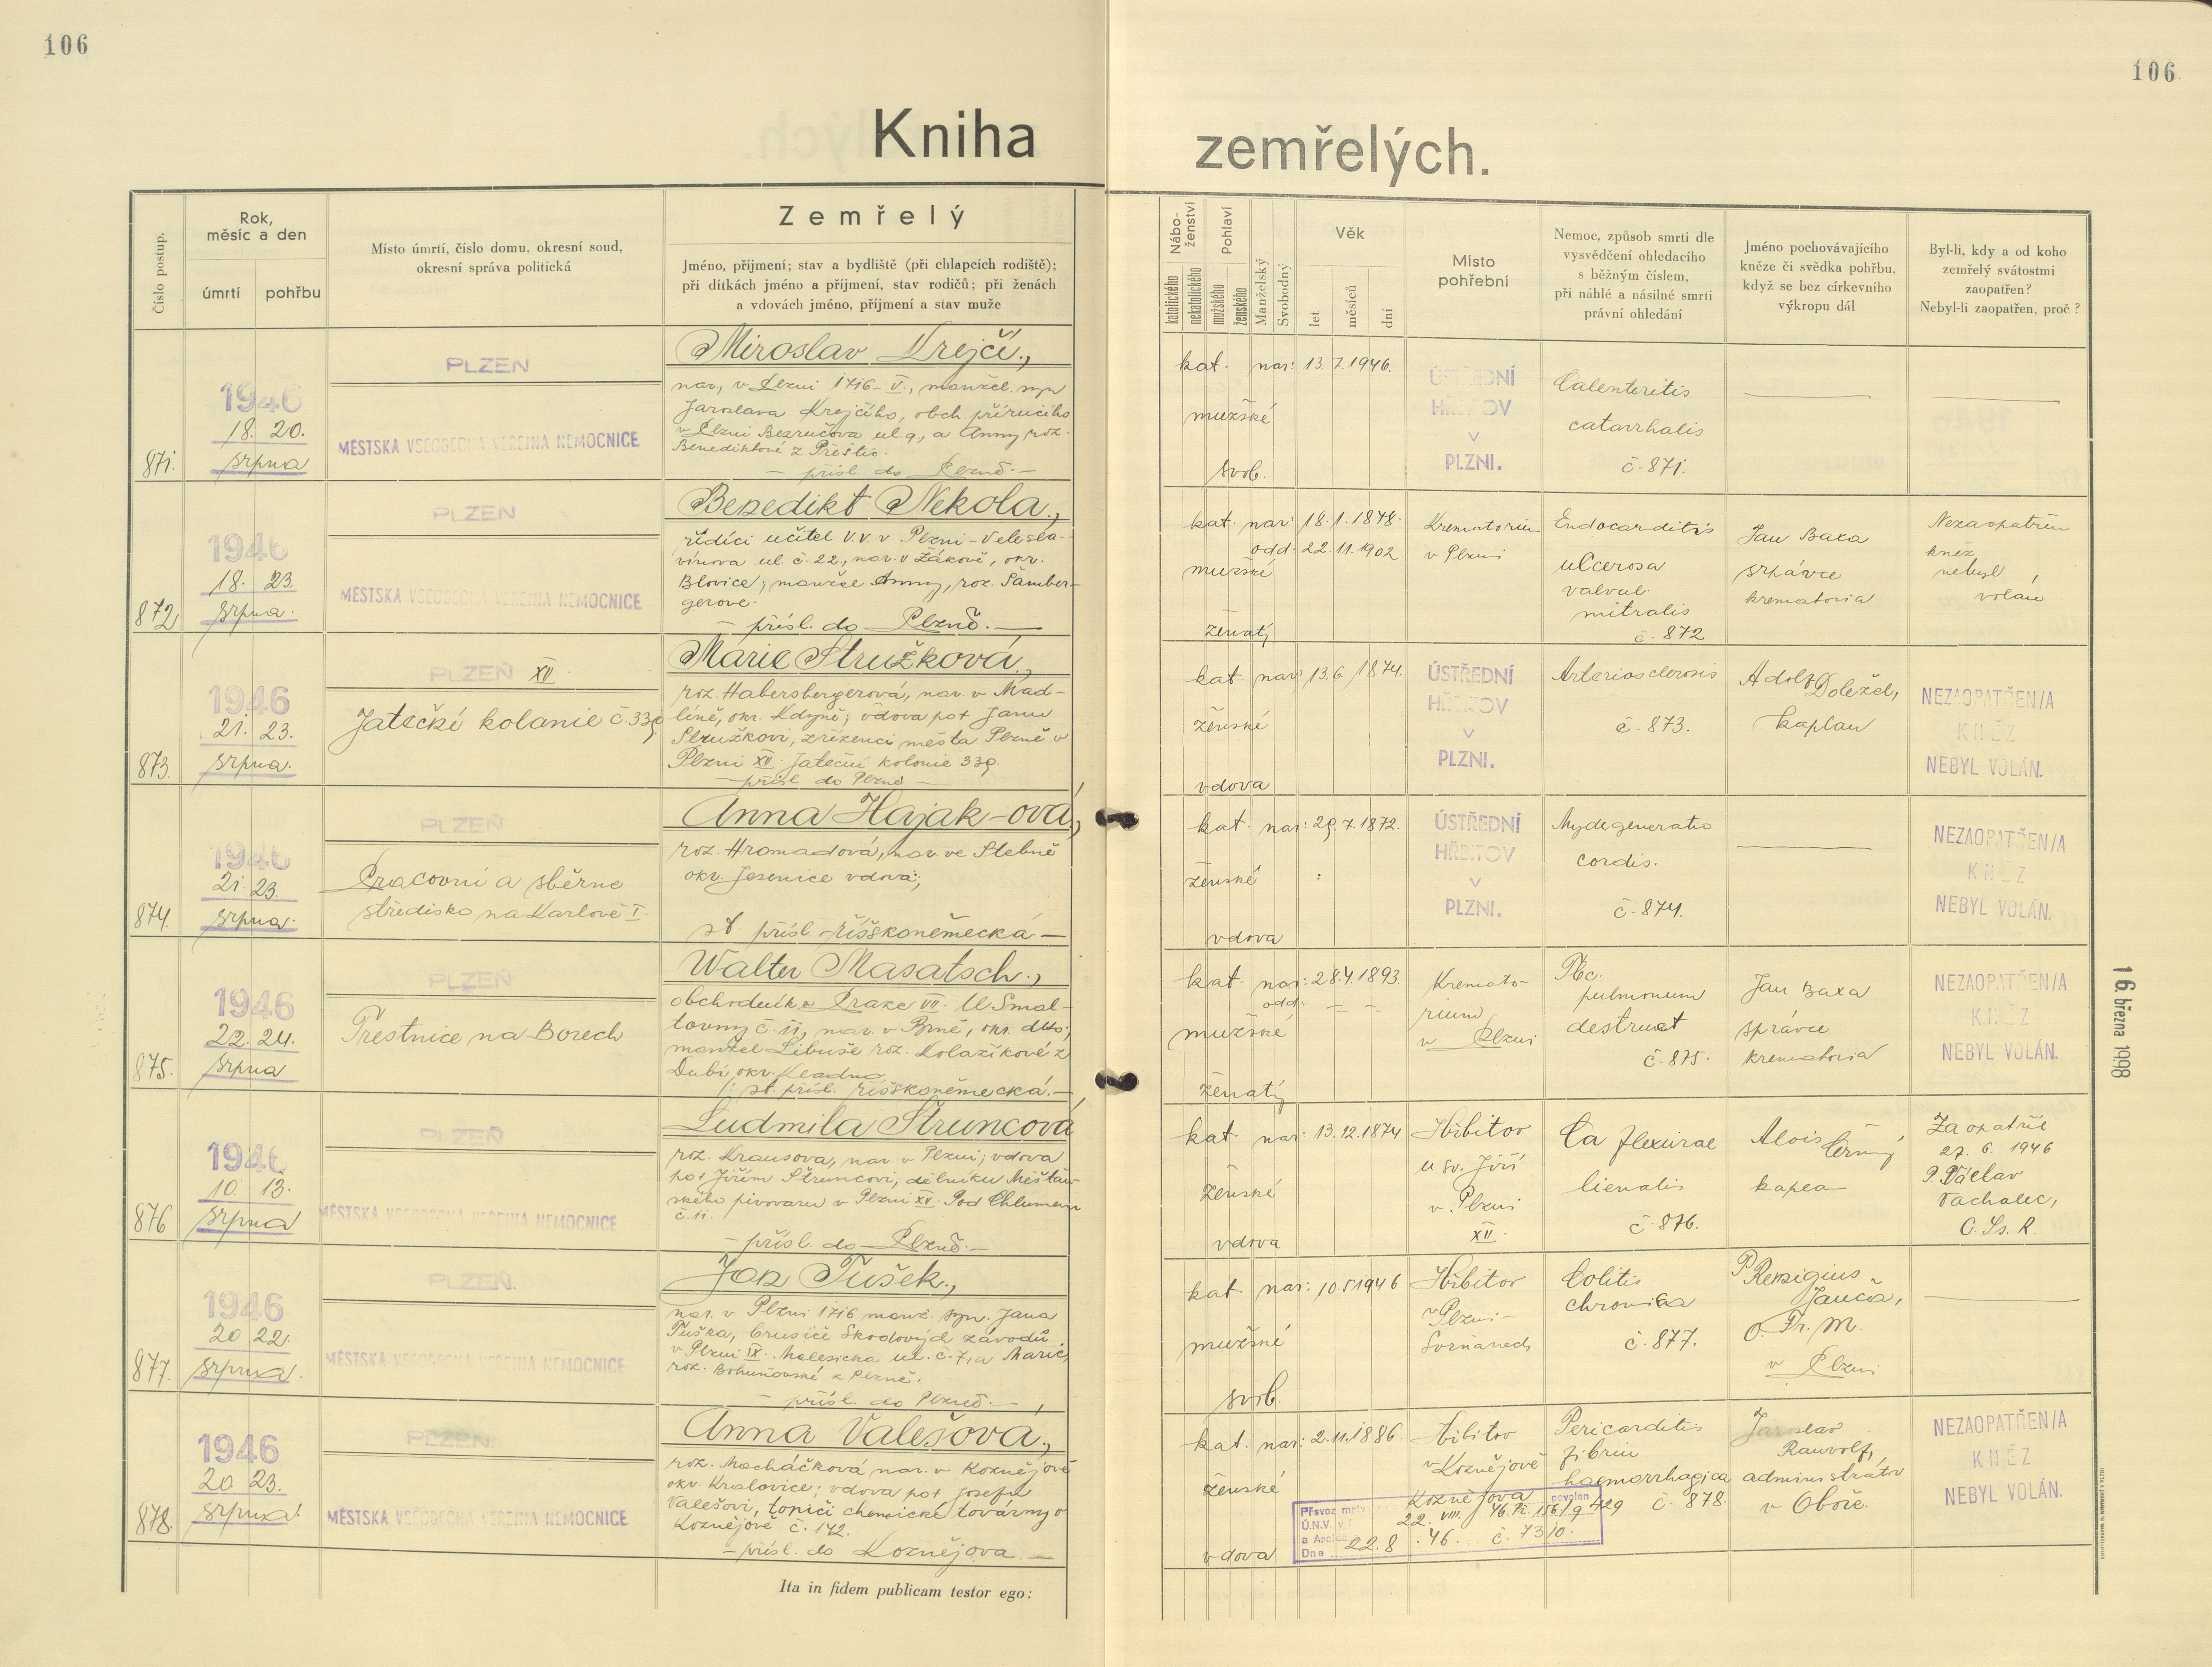 106
106
Kniha zemřelých.
Číslo postup.
Rok,
měsíc a den
úmrtí
pohřbu
Místo úmrtí, číslo domu, okresní soud,
okresní správa politická
Zemřelý
Jméno, příjmení; stav a bydliště (při chlapcích rodiště);
při dítkách jméno a příjmení, stav rodičů; při ženách
a vdovách jméno, příjmení a stav muže
Nábo-
ženství
katolického
nekatolického
Pohlaví
mužského
ženského
Manželský
Svobodný
Věk
let
měsíců
dní
Místo
pohřební
Nemoc, způsob smrti dle
vysvědčení ohledacího
s běžným číslem,
při náhlé a násilné smrti
právní ohledání
Jméno pochovávajícího
kněze či svědka pohřbu,
když se bez církevního
výkropu dál
Byl-li, kdy a od koho
zemřelý svátostmi
zaopatřen?
Nebyl-li zaopatřen, proč?
871.
1946
18. 20.
srpna
PLZEŇ
MĚSTSKÁ VŠEOBECNÁ VEŘEJNÁ NEMOCNICE
Miroslav Krejčí.,
nar. v Plzni 1716-V., manžel. syn
Jaroslava Krejčího, obch. příručího
v Plzni Bezručova ul. 9, a Anny roz.
Benediktové z Přeštic.
– přísl. do Plzně. –
kat. nar: 13.7.1946.
mužské
svob.
ÚSTŘEDNÍ
HŘBITOV
V
PLZNI.
catarrhalis
č. 871.
872
1946
18. 23.
srpna.
PLZEŇ
MĚSTSKÁ VŠEOBECNÁ VEŘEJNÁ NEMOCNICE
Benedikt Nekola.,
řídící učitel v.v. v Plzni-Velesla-
vínova ul. č. 22., nar. v Žákově, okr.
Blovice; manžel Anny, roz. Šamber-
gerové.
– přísl. do Plzně. –
kat. nar: 18.1.1878.
odd: 22.11.1902
mužské
ženatý
Krematorium
v Plzni
Endocarditis
ulcerosa
valvul.
mitralis
č. 872
Jan Baxa
správce
krematoria
Nezaopatřen
kněz
nebyl
volán
873.
1946
21. 23.
srpna.
PLZEŇ XV.
Jatečké kolonie č. 339
Marie Stružková,
roz. Habersbergerová, nar. v Mad-
líně, okr. Kdyně; vdova po † Janu
Stružkovi, zřízenci města Plzně v
Plzni XV. Jateční kolonie 339.
– přísl. do Plzně –
kat. nar: 13.6.1874.
ženské
vdova
ÚSTŘEDNÍ
HŘBITOV
V
PLZNI.
Arteriosclerosis
č. 873.
Adolf Doležel,
kaplan
NEZAOPATŘEN/A
KNĚZ
NEBYL VOLÁN.
874.
1946
21. 23.
srpna.
PLZEŇ
Pracovní a sběrné
středisko na Karlově I.
Anna Hajak-ová,
roz. Hromadová, nar. ve Stebně
okr. Jesenice vdova;
st. přísl. říšskoněmecká –
kat. nar: 29.7.1872.
ženské
vdova
ÚSTŘEDNÍ
HŘBITOV
V
PLZNI.
Myodegeneratio
cordis.
č. 874.
NEZAOPATŘEN/A
KNĚZ
NEBYL VOLÁN.
875.
1946
22. 24.
srpna
PLZEŇ
Trestnice na Borech
Walter Masatsch.,
obchodník v Praze VII. U Smal-
tovny č. 11, nar. v Brně, okr. dtto;
manžel Libuše roz. Kolaříkové z
Dubí, okr. Kladno
/: st. přísl. říšskoněmecká. –
kat. nar: 28.4.1893.
odd: – –
mužské
ženatý
Kremato-
rium
v Plzni
Tbc.
pulmonum
destruct
č. 875.
Jan Baxa
správce
krematoria
NEZAOPATŘEN/A
KNĚZ
NEBYL VOLÁN.
16. března 1998
876
1946
10. 13.
srpna
PLZEŇ
MĚSTSKÁ VŠEOBECNÁ VEŘEJNÁ NEMOCNICE
Ludmila Štruncová
roz. Krausová, nar. v Plzni; vdova
po † Jiřím Štruncovi, dělníku Měšťan-
ského pivovaru v Plzni XV. Pod Chlumem
č. 11.
– přísl. do Plzně. –
kat. nar: 13.12.1874
ženské
vdova
Hřbitov
u sv. Jiří
v Plzni
XII.
Ca flexurae
lienalis
č. 876.
Alois Černý
kaplan
Zaopatřil
27. 6. 1946
P. Václav
Vachalec,
C. Ss. R.
877.
1946
20 22.
srpna.
PLZEŇ.
MĚSTSKÁ VŠEOBECNÁ VEŘEJNÁ NEMOCNICE
Jan Tušek.,
nar. v Plzni 1716 manž. syn Jana
Tuška, brusiče Škodových závodů
v Plzni IX. Malesická ul. č. 7, a Marie,
roz. Bohuňovské z Plzně.
– přísl. do Plzně. –
kat. nar: 10.5.1946
mužské
svob.
Hřbitov
v Plzni-
Colitis
chronica
č. 877.
P. Remigius
Janča,
O. Fr. M.
v Plzni
878.
1946
20 23.
srpna.
PLZEŇ
MĚSTSKÁ VŠEOBECNÁ VEŘEJNÁ NEMOCNICE
Anna Valešová.,
roz. Macháčková nar. v Kaznějově
okr. Kralovice; vdova po † Josefu
Valešovi, topiči chemické továrny v
Kaznějově č. 142.
– přísl. do Kaznějova –
kat. nar: 2.11.1886.
ženské
vdova
Hřbitov
v Kaznějově
Pericarditis
fibrin
haemorrhagica
č. 878.
Jaroslav
Rauvolf,
administrátor
v Oboře.
NEZAOPATŘEN/A
KNĚZ
NEBYL VOLÁN.
Převoz mrtv. Kaznějova povolen
Ú.N.V. v 22. VIII. 46
Dne 22.8.46. č. 7310.
Ita in fidem publicam testor ego: